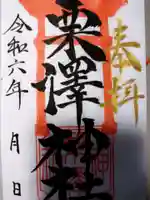 奉拝
栗澤神社
令和六年　月　日